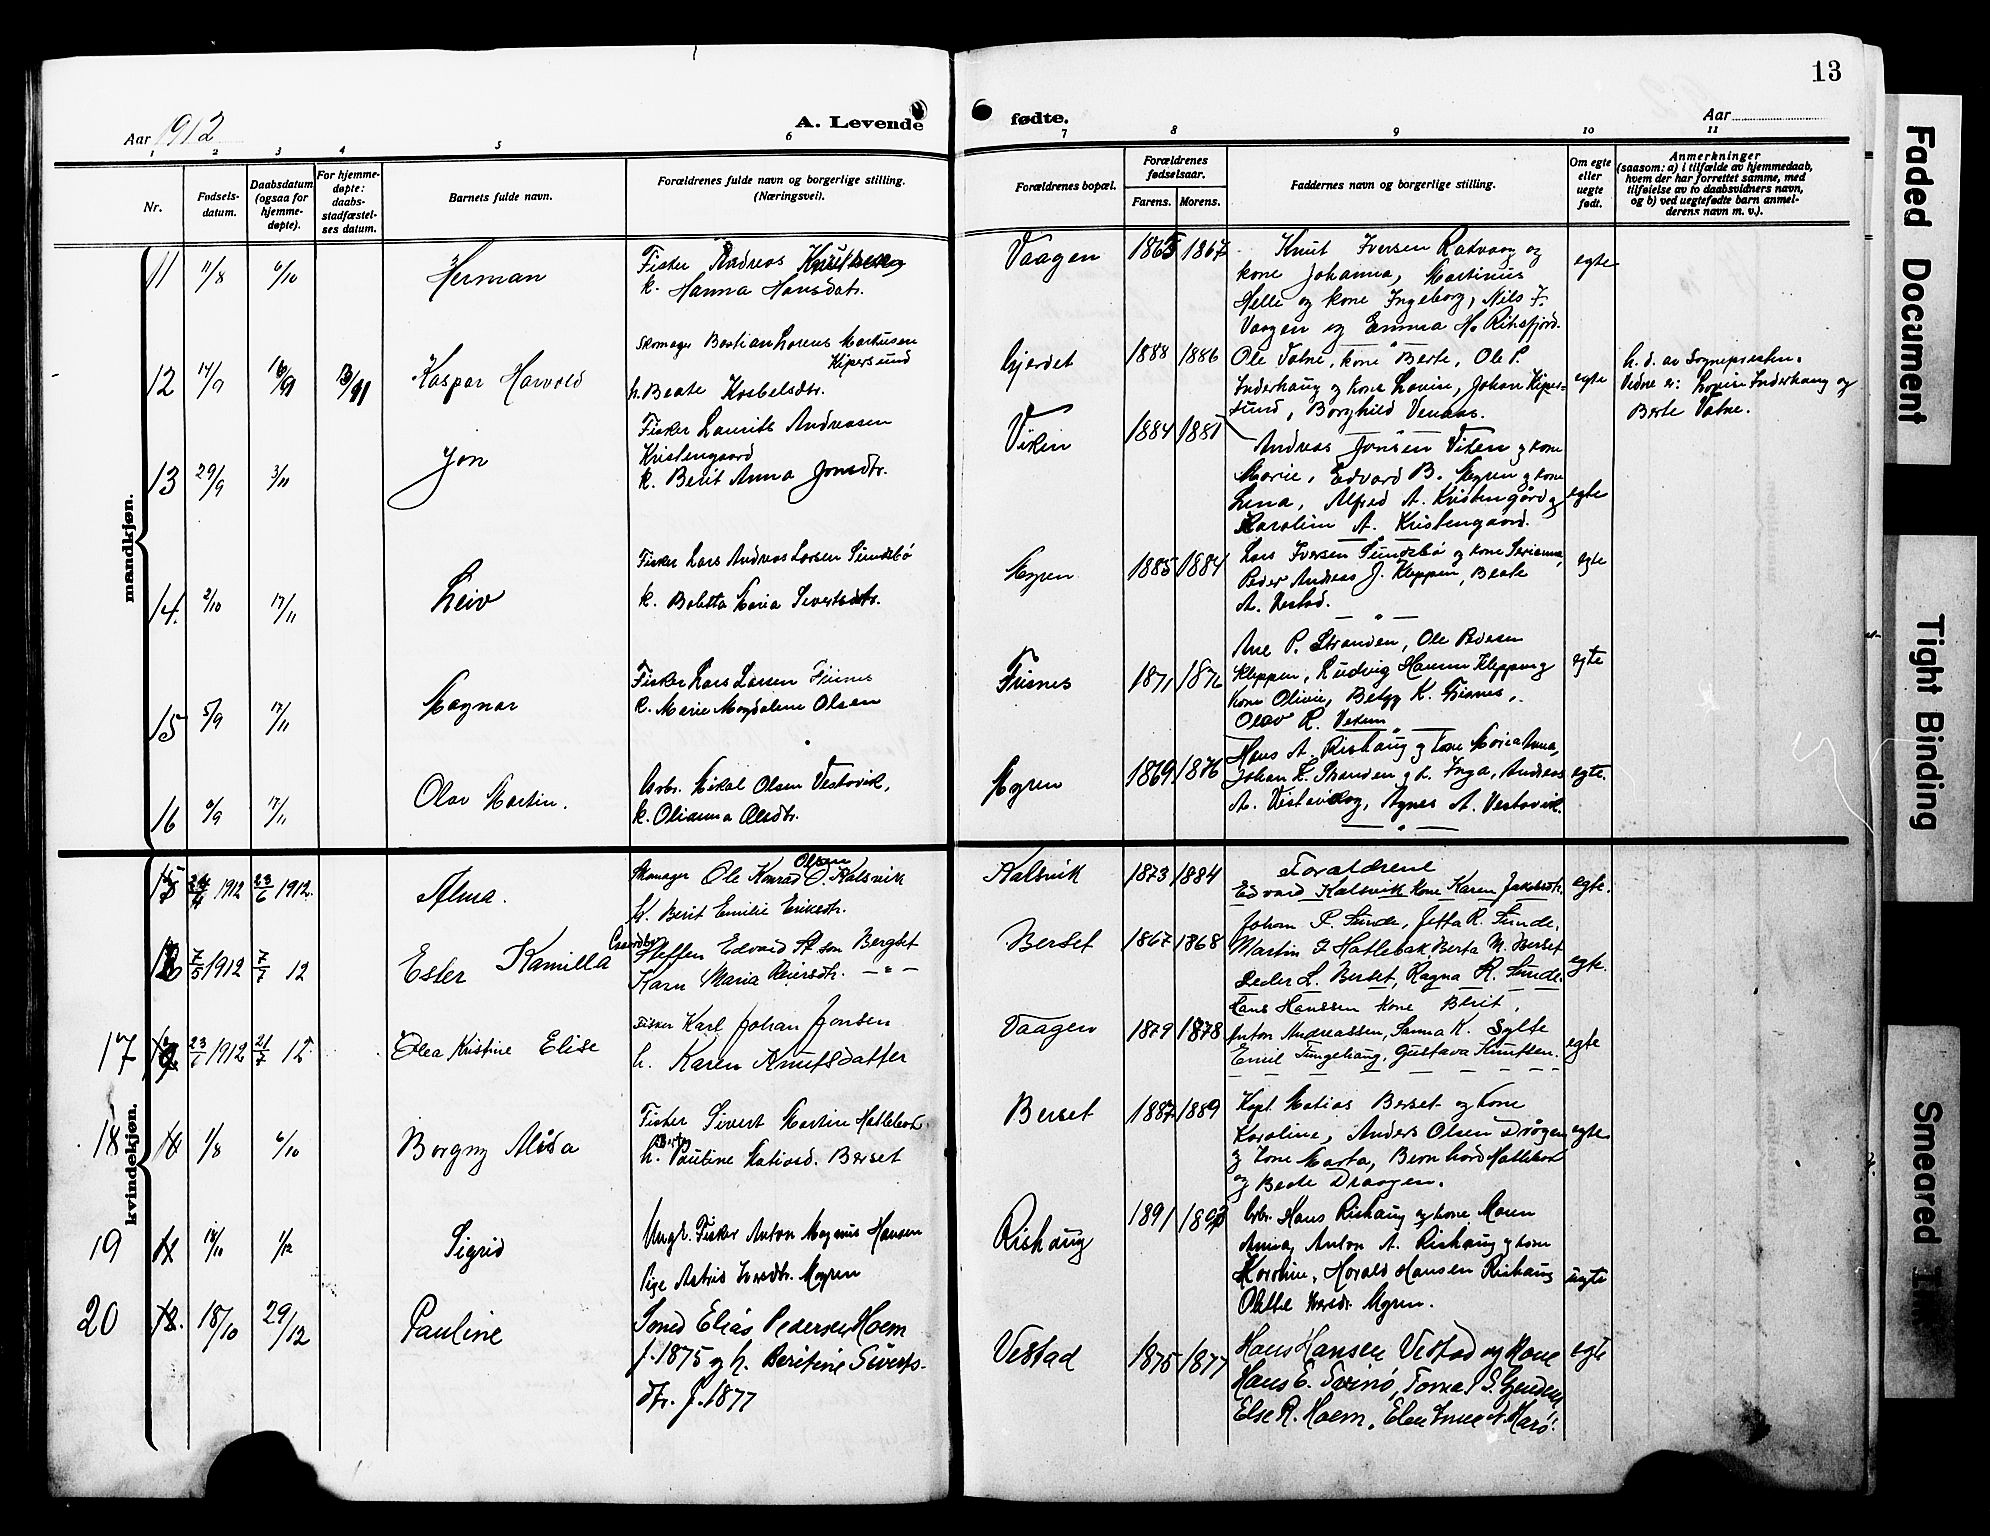 13
Aar 1912
A. Levende
fødte.
Aar
1 2 3 4 5 6 7 8 9 10 11
Nr.
Fødsels-
datum.
Daabsdatum
(ogsaa for
hjemme-
døpte).
For hjemme-
døpte:
daabs-
stadfæstel-
ses datum.
Barnets fulde navn.
Forældrenes fulde navn og borgerlige stilling.
(Næringsvei).
Forældrenes bopæl.
Forældrenes
fødselsaar.
Farens. Morens.
Faddernes navn og borgerlige stilling.
Om egte
eller
uegte
født.
Anmerkninger
(saasom: a) i tilfælde av hjemmedaab,
hvem der har forrettet samme, med
tilføielse av to daabsvidners navn,
og b) ved uegtefødte barn anmel-
derens navn m. v.).
mandkjøn.
11 11/8 6/10 Herman
Fisker Andreas Knutsen
k. Hanna Hansdatr.
Vaagen 1865 1867
Knut Iversen Ratvaag og
kone Johanna, Martinus
Helle og kone Ingeborg, Nils J.
Vaagen og Emma H. Riksfjord.
egte
12 14/9 Kaspar Harvold
Skomager Bastian Lorens Martusen
Kipersund
h. Beate Knebelsdtr.
Gjerdet 1888 1886
Ole Vatne, kone Berte, Ole P.
Inderhaug og kone Lovise, Johan Kiper-
sund, Borghild Venaas.
egte
h. d. av Sognepresten.
Vidne er: Lovise Inderhaug og
Berte Vatne.
13 29/9 3/11 Jon
Fisker Laurits Andreasen
Kristengaard
k. Berit Anna Jonsdtr.
Viken 1884 1881
Andreas Jonsen Viken og kone
Marie, Edvard B. Myren og kone
Lena, Alfred A. Kristengård og
Karoline A. Kristengaard.
egte
14. 2/10 17/11 Leiv
Fisker Lars Andreas Larsen Sundsbø
k. Boletta Maria Sivertsdtr.
Myren 1885 1884
Lars Iversen Sundsbø og kone Serianna,
Peder Andreas J. Kleppen, Beate
A. Vestad.
egte
15 5/9 17/11 Magnar
Fisker Lars Larsen Fiusnes
k. Marie Magdalene Olsen
Fiusnes 1871 1876
Ane P. Stranden, Ole Pedersen
Kleppen, Ludvig Hansen Kleppen og
kone Olivie, Betzy K.
Olav R.
egte
16 6/9 17/11 Olav Martin.
Arbr. Mikal Olsen Vestavik,
k. Olianna Olsdtr.
Myren 1869 1876
Hans A. Rishaug og kone Maria Anna,
Johan K. Stranden og k. Inga, Andreas
A. Vestavik og, Agnes A. Vestavik.
egte.
kvindekjøn.
15 1912 23/6 1912. Alma.
Skomager Ole Konrad O. Olsen Kalsvik
h. Berit Emilie Eriksdtr.
Kalsvik 1873 1884
Forældrene
Edvard Kalsvik kone Karen Jakobsdtr.
egte.
16 7/5 1912 7/7 12 Ester Kamilla
Gaardbr. Steffen Edvard St.son Bergset
Karn Maria Reiersdtr. — " —
Berset 1867 1868
Johan P. Sunde, Jetta R. Sunde,
Martin Z Hatlebak, Berta M. Berset
Peder L. Berset, Ragna R. Sunde.
egte.
17 1912 21/7 12. Olea Kristine Elise
Fisker Karl Johan Jonsen
h. Karen Knutsdatter
Vaagen 1879 1878
Hans Hanssen kone Berit,
Anton Andreassen, Sanna K. Sylte
Emil Tungehaug, Gustava Knutsen.
egte
18 1/8 6/10 Borgny Alida
Fisker Sivert Martin Hatlebak.
h. Berte Pauline Matiasd. Berset
Berset 1887 1889
Kapt. Matias Berset og kone
Karoline, Anders Olsen Drågen
og kone Marta, Bernhard Hatlebak
og Beate Draagen.
egte
19 14/10 1/12 Sigrid
Ungk. Fisker Anton Magnus Hansen
Pige Astrid Iversdtr. Myren
Rishaug 1891 1893
Arbr. Hans Rishaug og kone Maren
Anna, Anton A. Rishaug og kone
Karoline, Harald Hansen Rishaug
Iversdr. Myren.
uegte
20 18/10 29/12 Pauline
Smed Elias Pedersen Hoem
f. 1875 og h. Beritine Siverts-
dtr. f. 1877
Vestad 1875 1877
Hans Hansen Vestad og kone
Hans E. Tornes S.
Else R. Hoem,
egte
Faded Document
Tight Binding
Smeared Ink